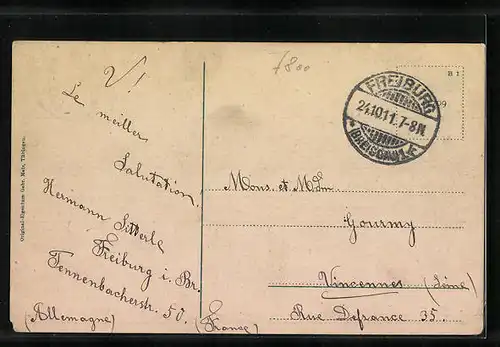 V!
Le meiller
Salutation.
Hermann Sitterle
Freiburg i. Br.
Tennenbacherstr. 50.
(Allemagne)
7800
B 1
FREIBURG
24.10.11.7-8N.
(BREISGAU) 1.F.
Mons. et Mdm
Gourmy
Vincennes (Seine)
Rue Defrance 35.
(France)
Original-Eigentum Gebr. Metz, Tübingen.